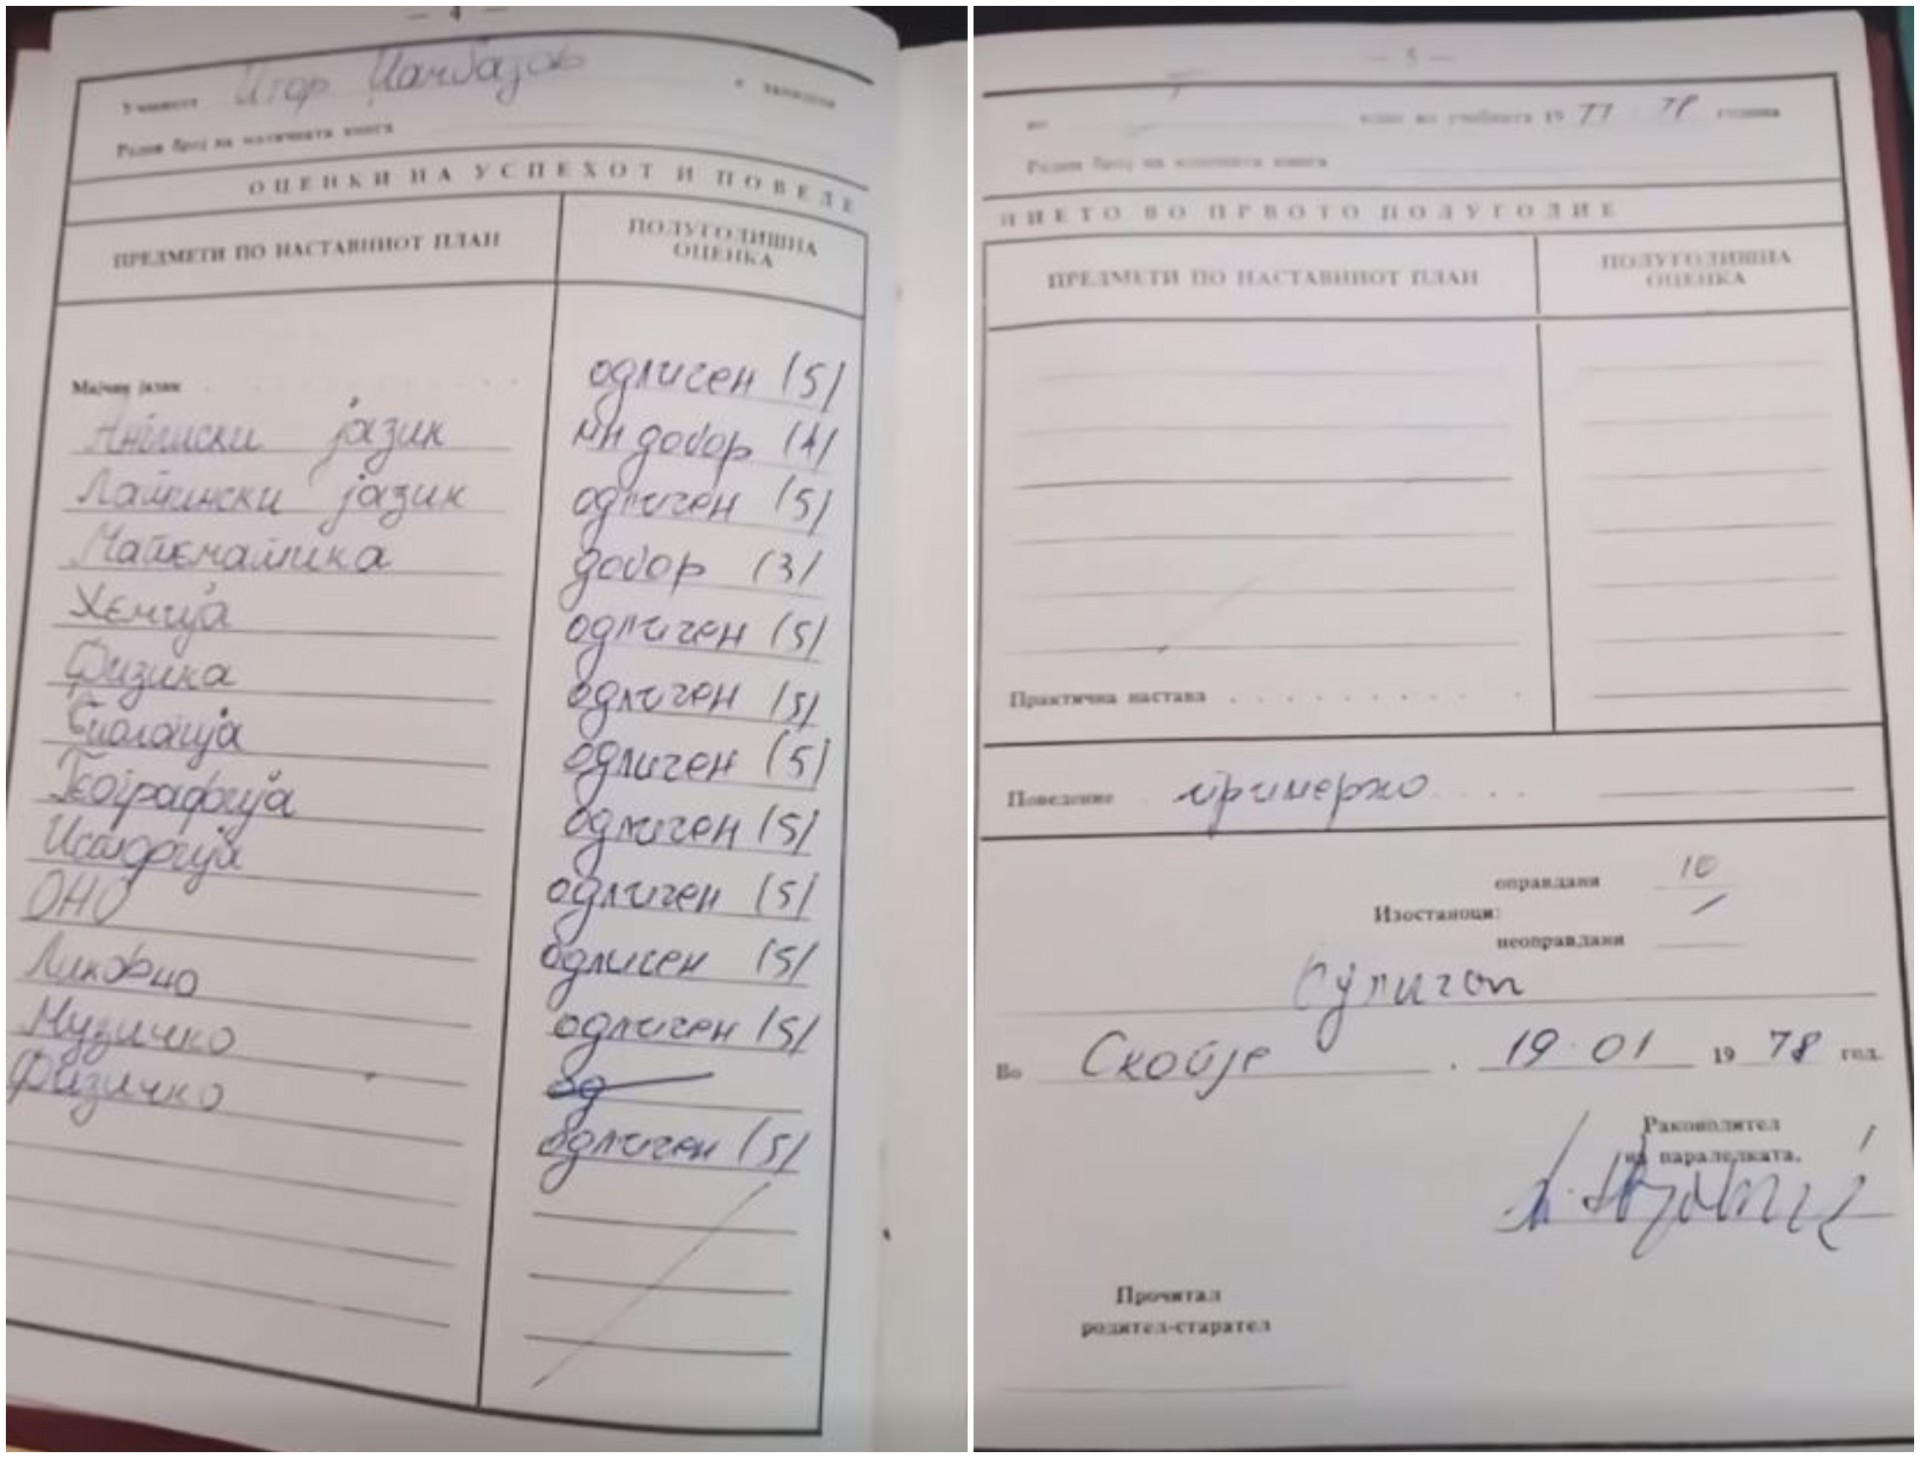 — 4 —
Ученикот Игор Џамбазов
Реден број на матичната книга
ОЦЕНКИ НА УСПЕХОТ И ПОВЕДЕ
ПРЕДМЕТИ ПО НАСТАВНИОТ ПЛАН ПОЛУГОДИШНА ОЦЕНКА
Мајчин јазик одличен (5)
Англиски јазик мн добар (4)
Латински јазик одличен (5)
Математика добар (3)
Хемија одличен (5)
Физика одличен (5)
Биологија одличен (5)
Географија одличен (5)
Историја одличен (5)
ОНО одличен (5)
Ликовно одличен (5)
Музичко од
Физичко одличен (5)
— 5 —
во I клас во учебната 19 77 78 година
Реден број на матичната книга
НИЕТО ВО ПРВОТО ПОЛУГОДИЕ
ПРЕДМЕТИ ПО НАСТАВНИОТ ПЛАН ПОЛУГОДИШНА ОЦЕНКА
Практична настава
Поведение примерно
оправдани 10
Изостаноци:
неоправдани /
Во Скопје . 19 01 19 78 год.
Раководител
на паралелката,
Прочитал
родител-старател